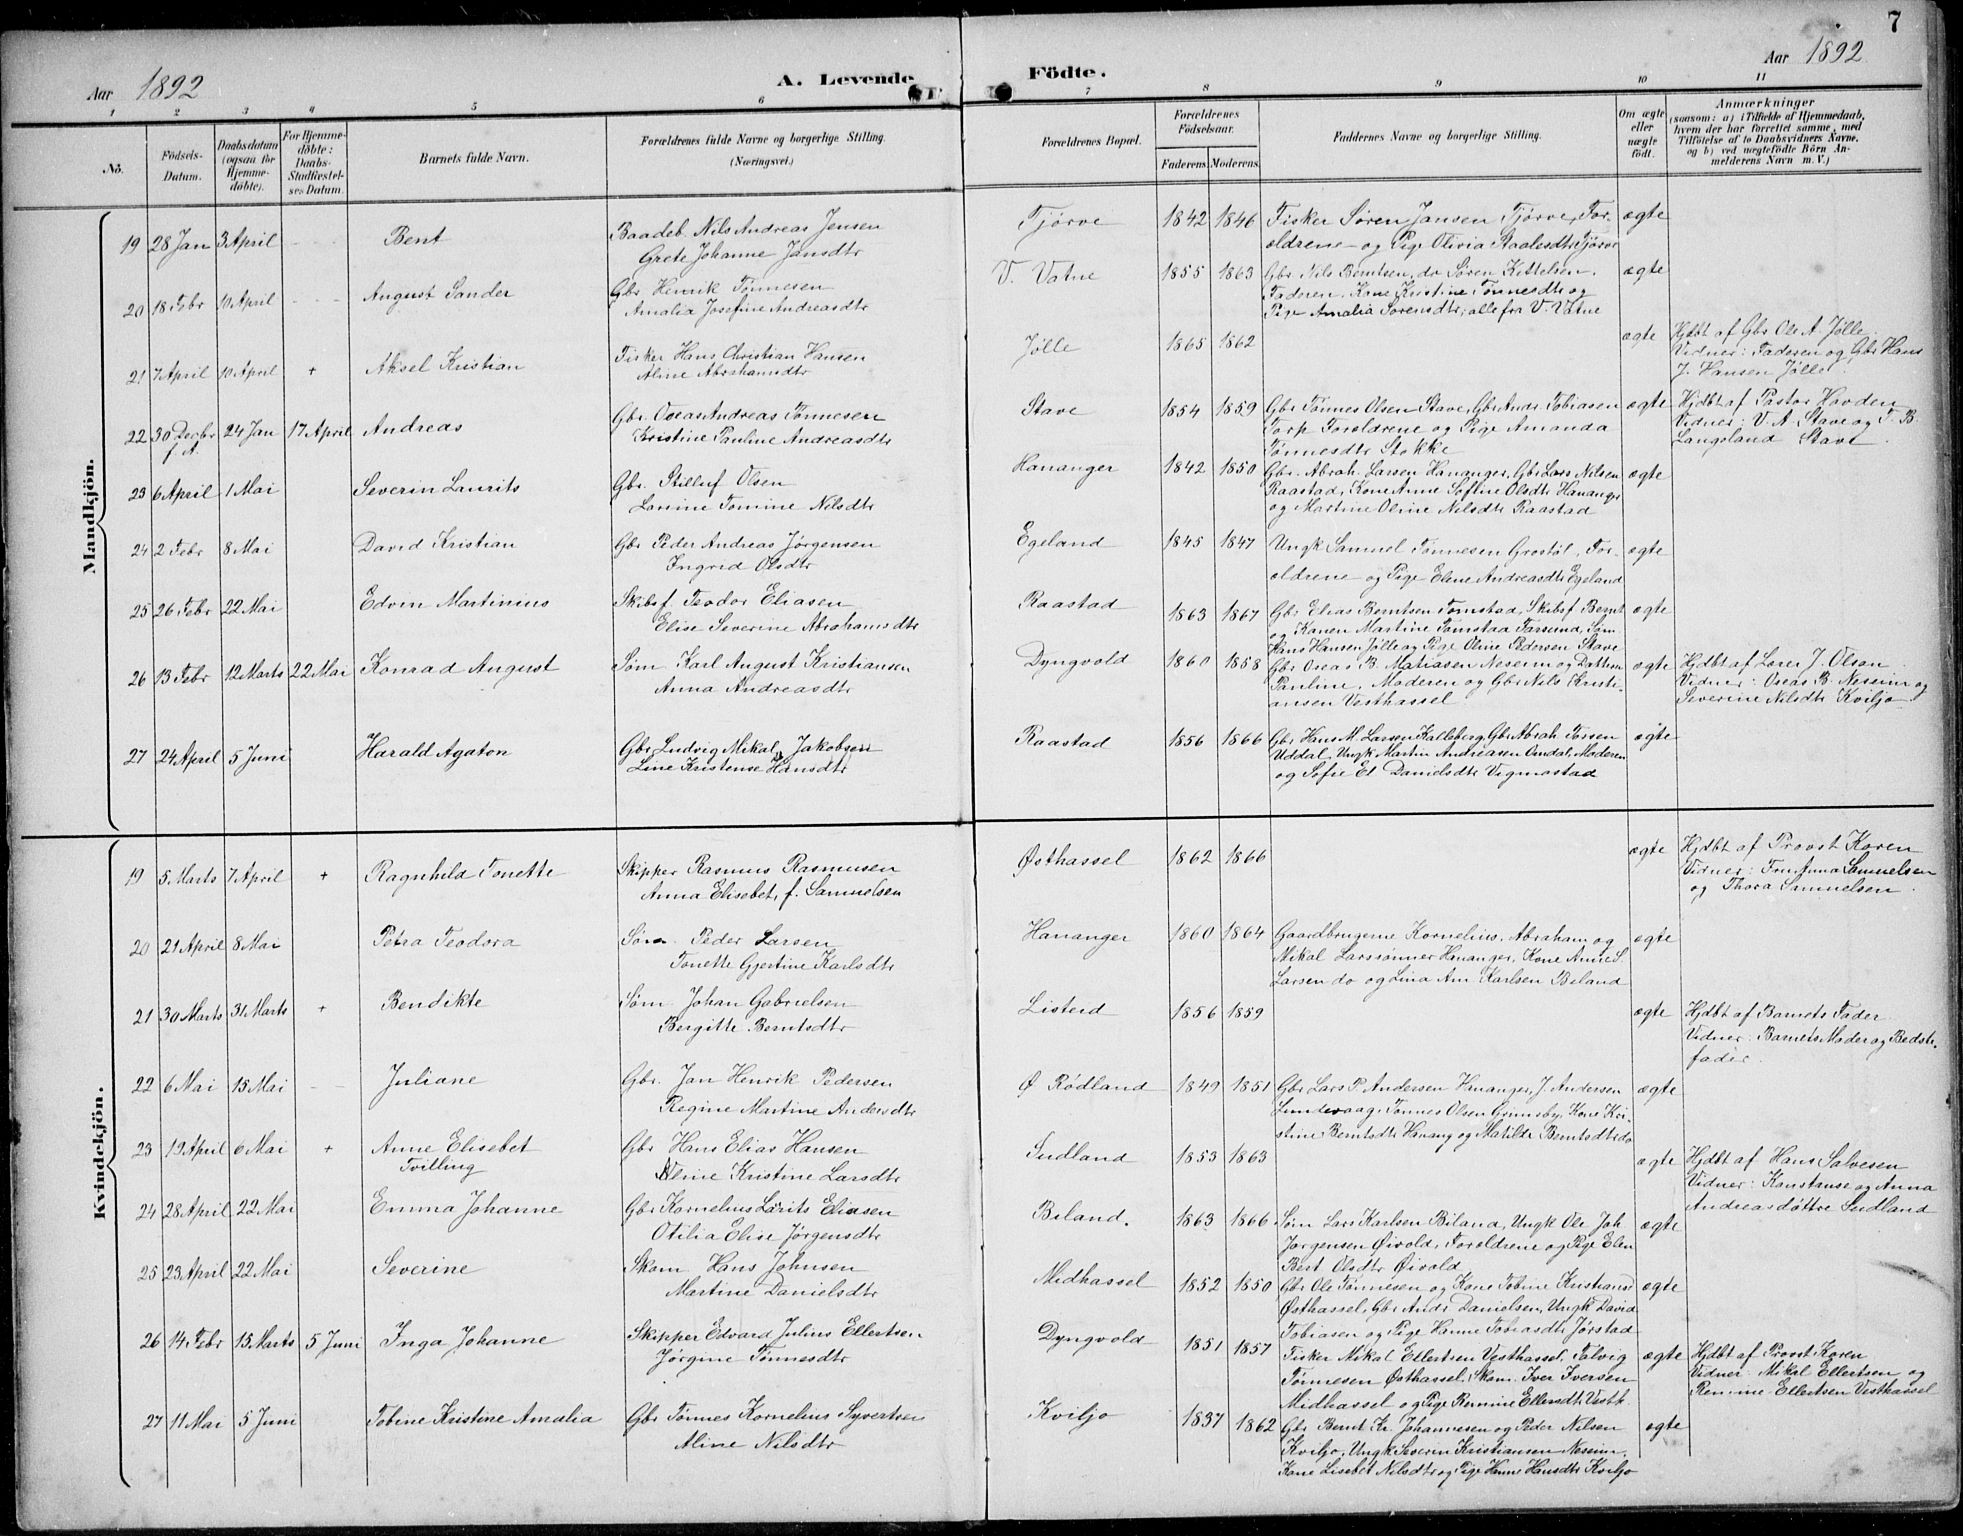 7
Aar 1892
A. Levende
Födte.
Aar 1892
1 2 3 4 5 6 7 8 9 10 11
No.
Födsels-Datum.
Daabsdatum (ogsaa for Hjemme-döbte).
For Hjemme-döbte: Daabs-Stadfæstel-ses Datum.
Barnets fulde Navn.
Forældrenes fulde Navne og borgerlige Stilling. (Næringsvei.)
Forældrenes Bopæl.
Forældrenes Födselsaar.
Faderens Moderens
Faddernes Navne og borgerlige Stilling.
Om ægte eller uægte födt.
Anmærkninger
(saasom: a) i Tilfælde af Hjemmedaab, hvem der har forrettet samme, med Tilföielse af to Daabsvidners Navne, og b) ved uægtefödte Börn Anmelderens Navn m. V.)
Mandkjön.
19 28 Jan 3 April Bent
Baadeb Nils Andreas Jensen
Grete Johanne Jansdtr
Tjørve 1842 1846
Fisker Søren Jansen Tjørve, For-
ældrene og Pige Olivia Staalesdtr Tjørve
ægte
20 18 Febr 10 April August Sander
Gbr Henrik Tønnesen
Amalia Josefine Andreasdtr
V. Vatne 1855 1863
Gbr Nils Berntsen, do Søren Kettelsen,
Faderen, Kone Kristine Tønnesdtr og
Pige Amalia Sørensdtr, alle fra V. Vatne
ægte
21 7 April 10 April + Aksel Kristian
Fisker Hans Christian Hansen
Aline Abrahamsdtr
Jølle 1865 1862
ægte
Hjdbt af Gbr Ole A. Jølle
Vidner: Faderen og Gbr Hans
J. Hansen Jølle.
22 30 Decbr f. A. 24 Jan 17 April Andreas
Gbr. Oseas Andreas Tønnesen
Kristine Pauline Andreasdtr
Stave 1854 1859
Gbr Tønnes Olsen Stave, Gbr Andr. Tobiasen
Torp Forældrene og Pige Amanda
Tønnesdtr Stokke
ægte
Hjdbt af Pastor Hovden
Vidner: V. A. Stave og T. B.
Langeland Stave.
23 6 April 1 Mai Severin Laurits
Gbr. Stilluf Olsen
Lovine Tomine Nilsdtr
Hananger 1842 1850
Gbr. Abrah. Larsen Hananger, Gbr Lars Nilsen
Raastad, Kone Anne Sofline Olsdtr Hananger
og Martine Oline Nilsdtr Raastad
ægte
24 2 Febr 8 Mai David Kristian
Gbr Peder Andreas Jørgensen
Ingrid Olsdtr
Egeland 1845 1847
Ungk Samuel Tønnesen Grostøl, For-
ældrene og Pige Elene Andreasdtr Egeland
ægte
25 26 Febr 22 Mai Edvin Martinius
Skibsf Teodor Eliasen
Elise Severine Abrahamsdtr
Raastad 1863 1867
Gbr Elias Berntsen Tomstad, Skibsf Bernt
og Konen Martine Tomstad Farsund, Søm
Hans Hansen Jølle og Pige Oline Pedersen Stave
ægte
26 13 Febr 12 Marts 22 Mai Konrad August
Søm Karl August Kristiansen
Anna Andreasdtr
Dyngvold 1860 1858
Gbr Oseas B. Matiasen Neseim og Dattern
Pauline, Moderen og Gbr Nils Kristi-
ansen Vesthassel
ægte
Hjdbt af Lærer J. Olsen
Vidner: Oseas B. Neseim og
Severine Nilsdtr Kviljo.
27 24 April 5 Juni Harald Agaton
Gbr Ludvig Mikal Jakobsen
Line Kristense Hansdtr
Raastad 1856 1866
Gbr Hans M. Larsen Kalleberg, Gbr Abrah Torsen
Uddal, Ungk Martin Andreasen Omdal, Moderen
og Sofie El Danielsdtr Vigmostad
ægte
Kvindekjön.
19 5 Marts 7 April + Ragnhild Tonette
Skipper Rasmus Rasmusen
Anna Elisebet, f. Samuelsen
Østhassel 1862 1866
ægte
Hjdbt af Provst Koren
Vidner: Fru Anna Samuelsen
og Thora Samuelsen.
20 21 April 8 Mai Petra Teodora
Søm. Peder Larsen
Tonette Gjertine Karlsdtr
Hananger 1860 1864
Gaardbrugerne Kornelius, Abraham og
Mikal Larssønner Hananger, Kone Anne S.
Larsen do og Lina Am Karlsen Biland
ægte
21 30 Marts 31 Marts + Bendikte
Søm. Johan Gabrielsen
Bergitte Berntsdtr
Listeid 1856 1859
ægte
Hjdbt af Barnets Fader
Vidner: Barnets Moder og Bedste-
fader.
22 6 Mai 15 Mai Juliane
Gbr. Jan Henrik Pedersen
Regine Martine Andersdtr
Ø Rødland 1849 1851
Gbr Lars P. Andersen Hananger, J. Andersen
Lundevaag, Tønnes Olsen Grimsby, Kone Kri-
stine Berntsdtr Hanang og Matilde Berntsdtr do
ægte
23 19 April 6 Mai + Anne Elisebet
Tvilling
Gbr Hans Elias Hansen
Aline Kristine Larsdtr
Sudland 1853 1863
ægte
Hjdbt af Hans Salvesen
Vidner: Konstanse og Anna
Andreasdøttre Sudland
24 28 April 22 Mai Emma Johanne
Gbr Kornelius Lorits Eliasen
Otilia Elise Jørgensdtr
Biland. 1863 1866
Søm Lars Karlsen Biland, Ungk Ole Joh
Jørgensen Øivold, Forældrene og Pige Elen
Bert Olsdtr Øivold
ægte
25 23 April 22 Mai Severine
Skom Hans Johnsen
Martine Danielsdtr
Midhassel 1852 1850
Gbr Ole Tønnesen og Kone Tobine Kristians
Østhassel, Gbr Andr Danielsen, Ungk David
Tobiasen og Pige Hanne Tobiasdtr Jørstad
ægte
26 14 Febr 15 Marts 5 Juni Inga Johanne
Skipper Edvard Julius Ellertsen
Jørgine Tønnesdtr
Dyngvold 1851 1857
Fisker Mikal Ellertsen Vesthassel, Talvig
Tønnesen Østhassel, Skom. Iver Iversen
Midhassel og Pige Remine Ellersdtr Vesth.
ægte
Hjdbt af Provst Koren
Vidner: Mikal Ellertsen og
Remine Ellertsen Vesthassel
27 11 Mai 5 Juni Tobine Kristine Amalia
Gbr Tønnes Kornelius Syvertsen
Aline Nilsdtr
Kviljo 1837 1862
Gbr Bernt Kr. Johannesen og Peder Nilsen
Kviljo, Ungk Severin Kristiansen Neseim,
Kone Lisebet Nilsdtr og Pige Hanne Hansdtr Kviljo
ægte